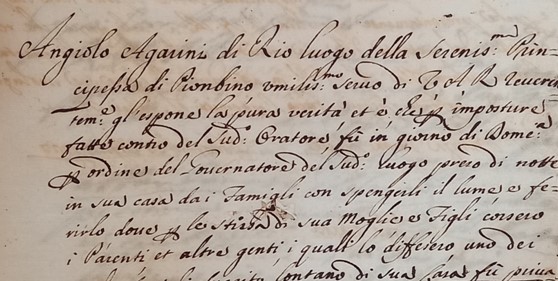 Angiolo Agarini di Rio luogo della Serenis:ma Prin-
cipessa di Pionbino umilis:mo Seruo di V A R reueren
tem:e gl'espone la pura verità et è, che p imposture
fatte contro del Sud:o Oratore fù in giorno di Dome:a
p ordine del Gouernatore del Sud:o luogo preso di notte
in sua casa dai Famigli con spengerli il lume e fe-
rirlo doue p le strida di sua Moglie e Figli corsero
i Parenti et altre genti i quali lo difesero uno dei
lontano di sua Casa fù